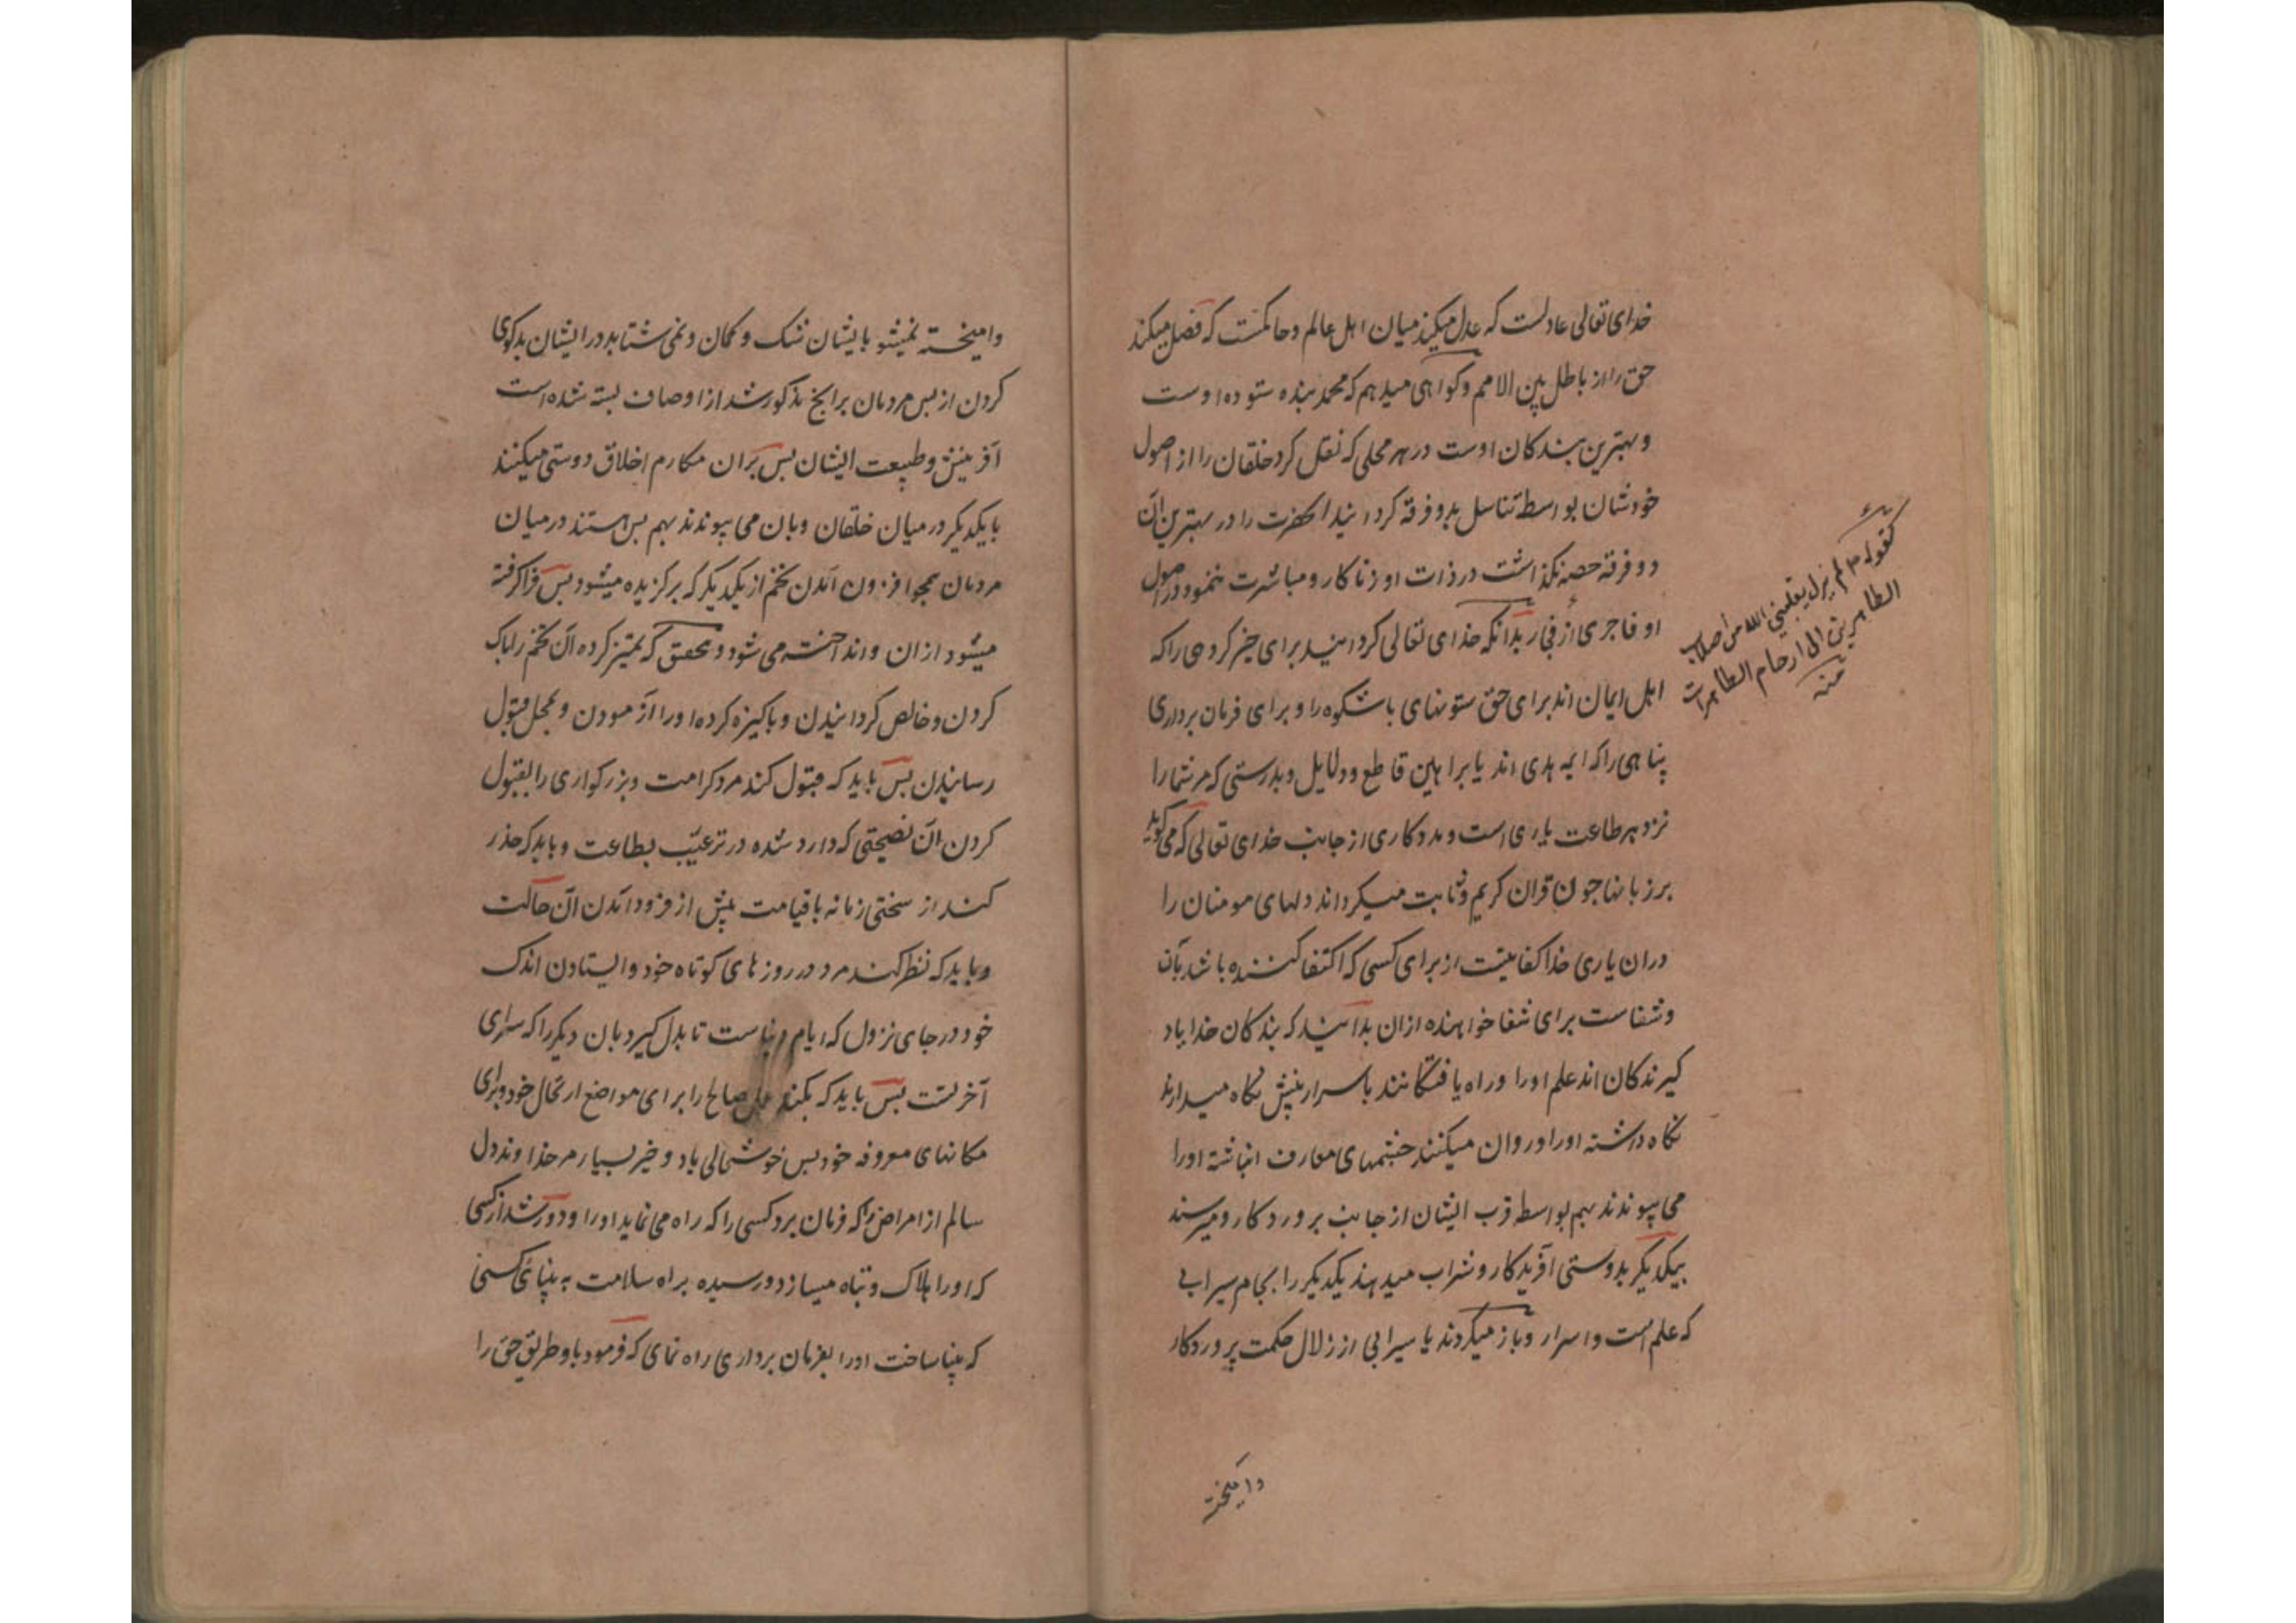 خدای تعالی عادلست که عدل میکند میان اهل عالم و حاکمست که فصل میکند
حق را از باطل بین الامم و کواهی میدهم که محمد بنده ستوده اوست
و بهترین بندکان اوست در هر محلی که نقل کرد خلقان را از اصول
خودشان بواسطه تناسل بدو فرقه کردانید انحضرت را در بهترین آن
دو فرقه حصه نکذاشت در ذات او زناکار و مباشرت ننمود در اصول
او فاجری از فجار بدانکه خدای تعالی کردانید برای خیر کروهی را که
اهل ایمان اند برای حق ستونهای باشکوه را و برای فرمان برداری
پناهی را که ایمه هدی اند یا براهین قاطع و دلایل و بدرستی که مر شما را
نزد هر طاعت یاری است و مددکاری از جانب خدای تعالی که می کوید
بر زبانها جون قران کریم و ثابت میکرداند دلهای مومنان را
دران یاری خدا کفایتست از برای کسی که اکتفا کننده باشد بآن
و شفاست برای شفا خواهنده ازان بدانید که بندکان خدا یاد
کیرندکان اند علم اورا و راه یافتکانند باسرار بینش نکاه میدارند
نکاه داشته اورا و روان میکنند جشمهای معارف انباشته اورا
می پیوندند بهم بواسطه قرب ایشان از جانب پروردکار و میرسند
بیکدیکر بدوستی آفریدکار و شراب میدهند یکدیکر را بجام سیرابی
که علم است و اسرار و باز میکردند با سیرابی از زلال حکمت پروردکار
کقوله ص لم یزل ینقلنی الله من اصلاب
الطاهرین الی ارحام الطاهرات
منه
وامیخته
وامیخته نمیشو بایشان شک و کمان و نمی شتابد در ایشان بدکوی
کردن از پس مردمان برانج مذکور شد از اوصاف بسته شده است
آفرینش و طبیعت ایشان بس بران مکارم اخلاق دوستی میکنند
با یکدیکر در میان خلقان و بان می پیوندند بهم بس هستند در میان
مردمان همجو افزون آمدن تخم از یکدیکر که برکزیده میشود بس فراکرفته
میشود ازان و انداخته می شود و بتحقیق که تمیز کرده آن تخم را پاک
کردن و خالص کردانیدن و پاکیزه کرده اورا آزمودن و بمحل قبول
رسانیدن بس باید که قبول کند مرد کرامت و بزرکواری را بقبول
کردن آن نصیحتی که وارد شده در ترغیب بطاعت و باید که حذر
کند از سختی زمانه یا قیامت پیش از فرود آمدن آن حالت
و باید که نظر کند مرد در روزهای کوتاه خود و ایستادن اندک
خود در جای نزول که ایام دنیاست تا بدل کیرد بان دیکر را که سرای
آخرتست بس باید که بکند عمل صالح را برای مواضع ارتحال خود و برای
مکانهای معروفه خود بس خوشحالی باد و خیر بسیار مر خداوند دل
سالم از امراض را که فرمان برد کسی را که راه می نماید اورا و دور شد از کسی
که اورا هلاک و تباه میسازد و رسیده براه سلامت به بینائی کسی
که بینا ساخت اورا بفرمان برداری راه نمای که فرمود باو طریق حق را